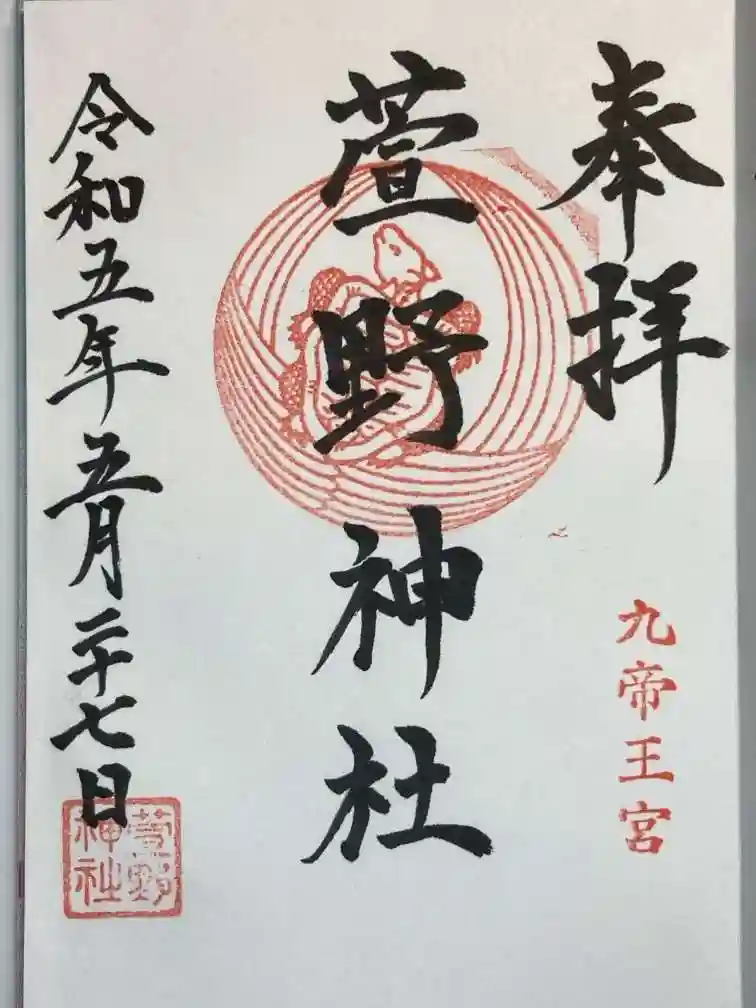 奉拝
九帝王宮
萱野神社
令和五年五月二十七日
萱野
神社